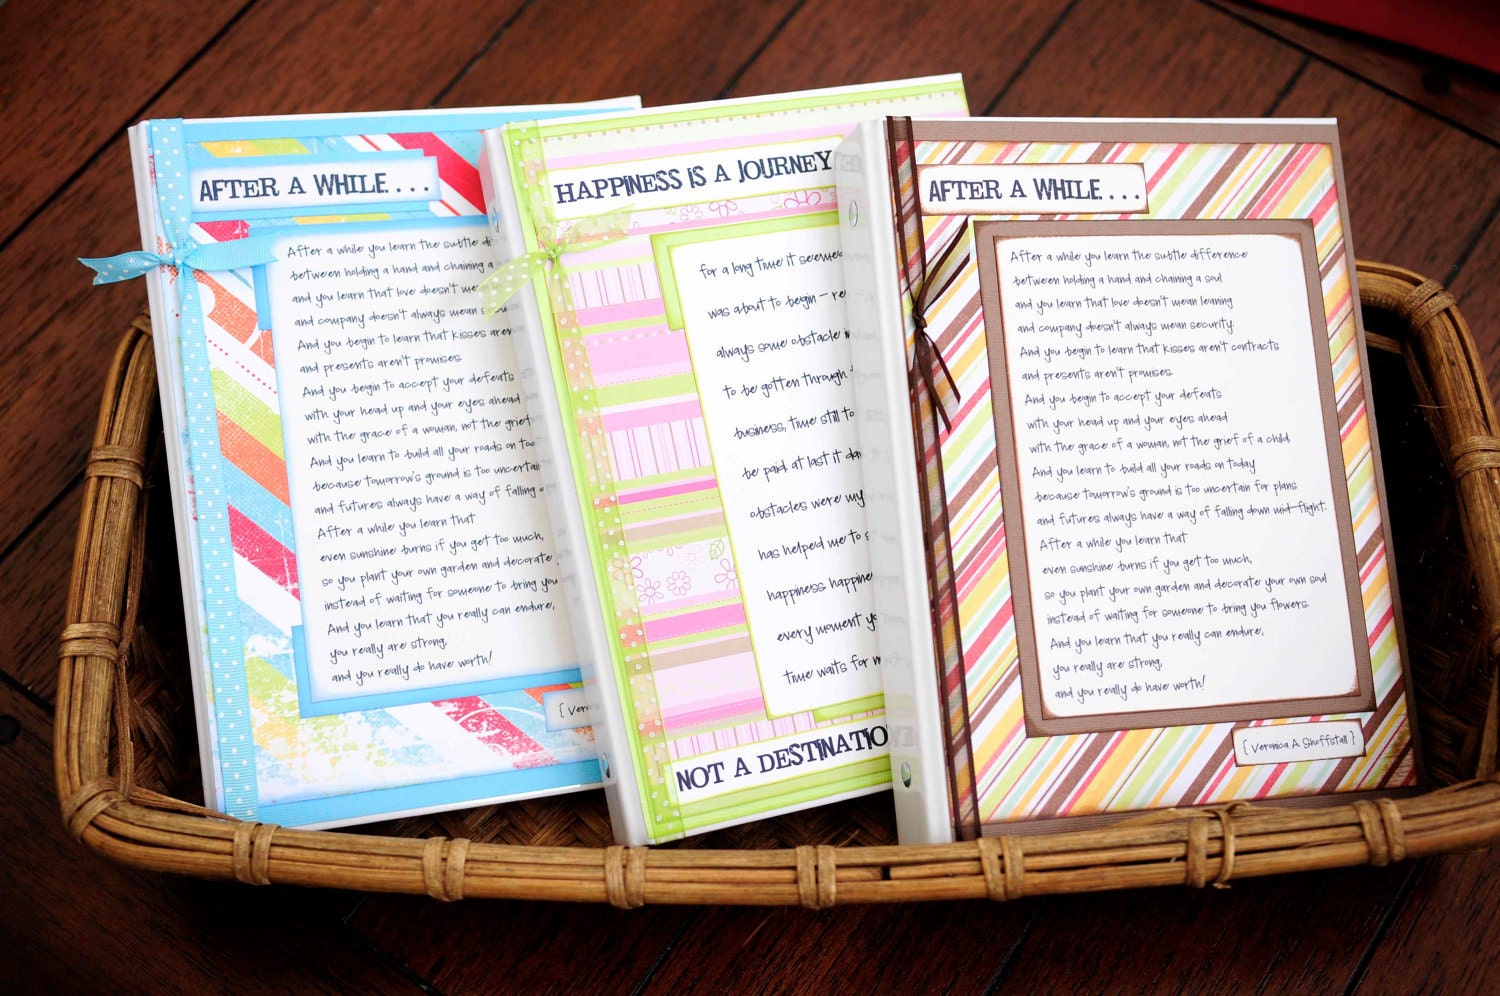 AFTER A WHILE....
After a while you learn the subtle
between holding a hand and chaining a
and you learn that love doesn't
and company doesn't always mean
And you begin to learn that kisses
and presents aren't promises.
And you begin to accept your defeats
with your head up and your eyes ahead
with the grace of a woman, not the grief
And you learn to build all your roads on
because tomorrow's ground is too uncertain
and futures always have a way of falling
After a while you learn that
even sunshine burns if you get too much,
so you plant your own garden and decorate
instead of waiting for someone to bring you
And you learn that you really can endure,
you really are strong,
and you really do have worth!
HAPPINESS IS A JOURNEY
for a long time it seemed
was about to begin –
always some obstacle
to be gotten through
business, time still to
be paid at last it
obstacles were my
has helped me to
happiness
every moment
time waits for
NOT A DESTINATION
AFTER A WHILE....
After a while you learn the subtle difference
between holding a hand and chaining a soul
and you learn that love doesn't mean leaning
and company doesn't always mean security.
And you begin to learn that kisses aren't contracts
and presents aren't promises.
And you begin to accept your defeats
with your head up and your eyes ahead
with the grace of a woman, not the grief of a child.
And you learn to build all your roads on today
because tomorrow's ground is too uncertain for plans
and futures always have a way of falling down mid-flight.
After a while you learn that
even sunshine burns if you get too much,
so you plant your own garden and decorate your own soul
instead of waiting for someone to bring you flowers.
And you learn that you really can endure,
you really are strong,
and you really do have worth!
{ Veronica A. Shoffstall }